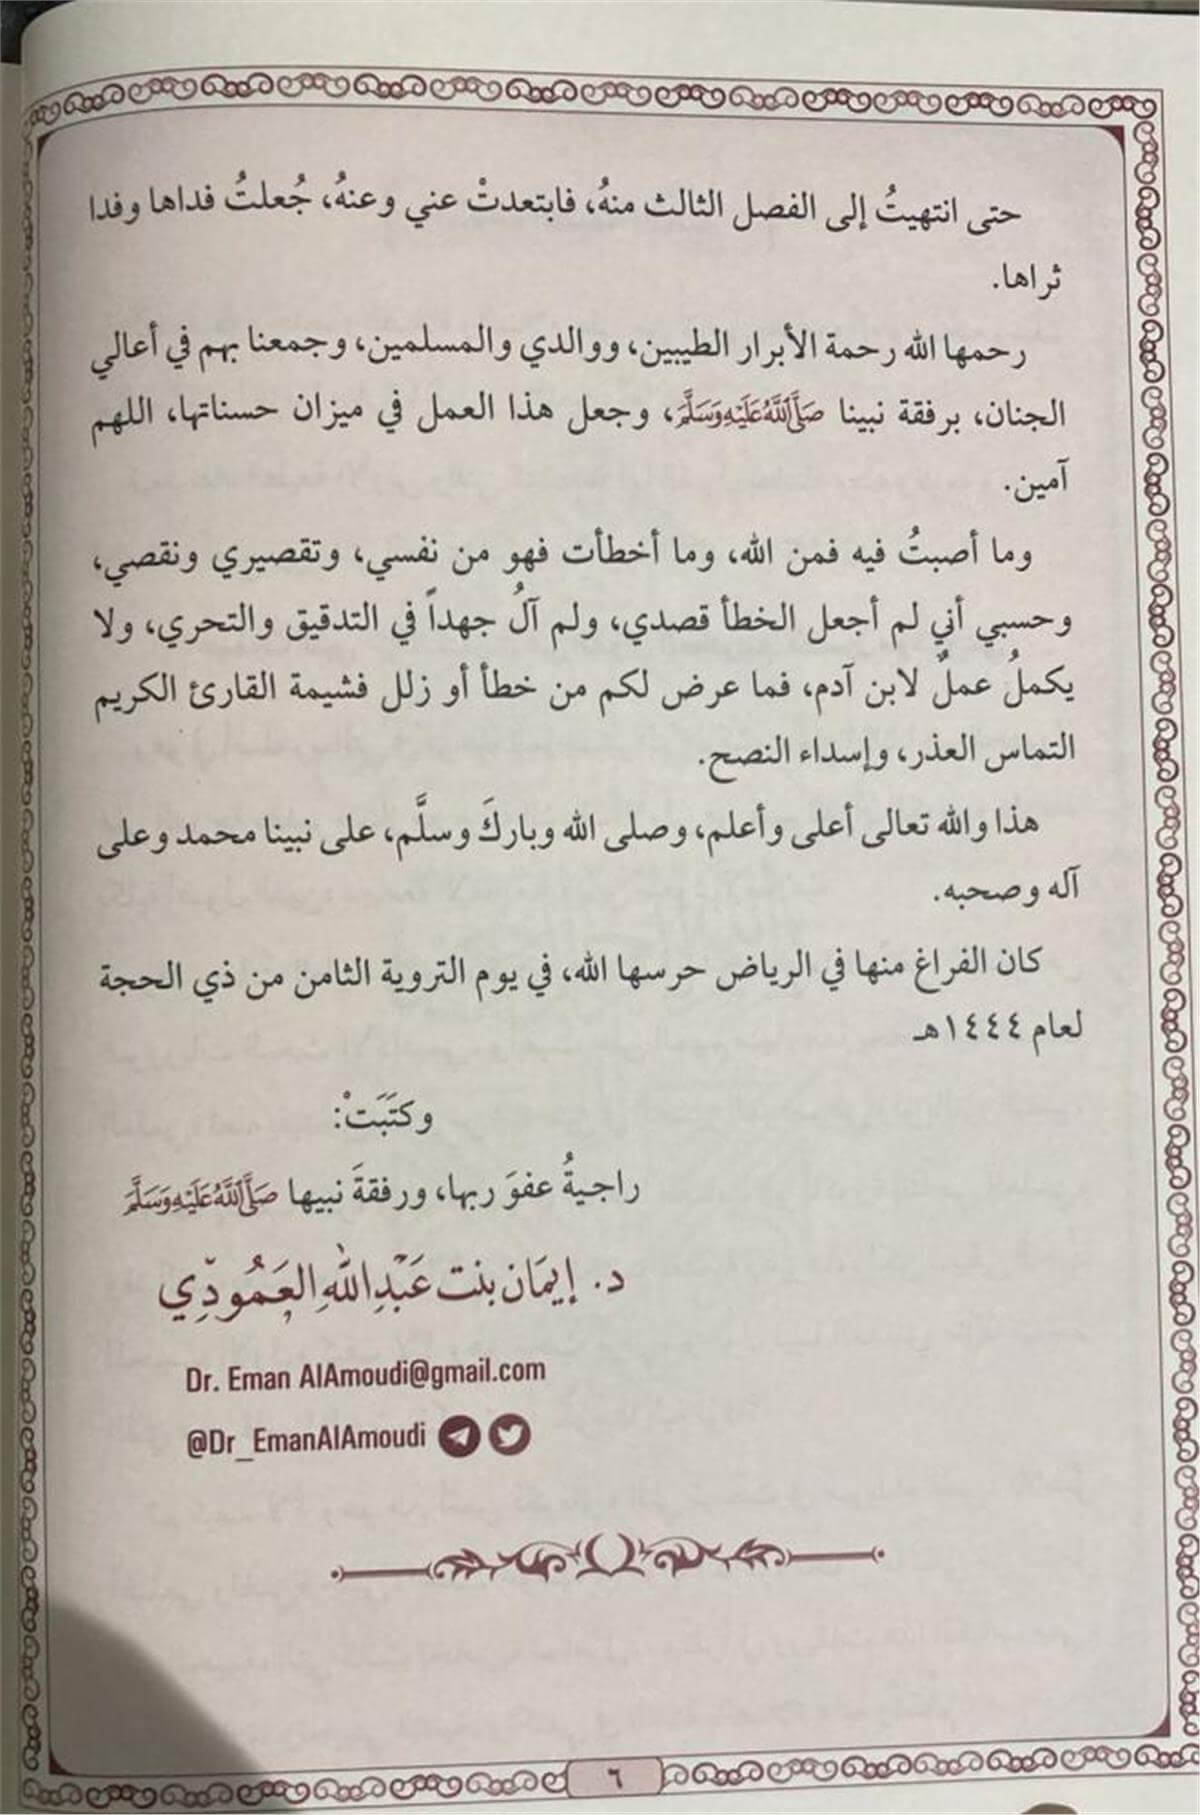 حتى انتهيتُ إلى الفصل الثالث منهُ، فابتعدتْ عني وعنهُ، جُعلتُ فداها وفدا
ثراها.
رحمها الله رحمة الأبرار الطيبين، ووالدي والمسلمين، وجمعنا بهم في أعالي
الجنان، برفقة نبينا صَلَّىٰاللَّهُعَلَيْهِوَسَلَّمَ، وجعل هذا العمل في ميزان حسناتها، اللهم
آمين.
وما أصبتُ فيه فمن الله، وما أخطأت فهو من نفسي، وتقصيري ونقصي،
وحسبي أني لم أجعل الخطأ قصدي، ولم آلُ جهداً في التدقيق والتحري، ولا
يكملُ عملٌ لابن آدم، فما عرض لكم من خطأ أو زلل فشيمة القارئ الكريم
التماس العذر، وإسداء النصح.
هذا والله تعالى أعلى وأعلم، وصلى الله وباركَ وسلَّم، على نبينا محمد وعلى
آله وصحبه.
كان الفراغ منها في الرياض حرسها الله، في يوم التروية الثامن من ذي الحجة
لعام ١٤٤٤هـ
وكتَبَتْ:
راجيةُ عفوَ ربها، ورفقةَ نبيها صَلَّىٰاللَّهُعَلَيْهِوَسَلَّمَ
د. إيمَان بنت عَبْدِ اللهِ العَمُودِي
Dr. Eman AlAmoudi@gmail.com
@Dr_EmanAlAmoudi
٦